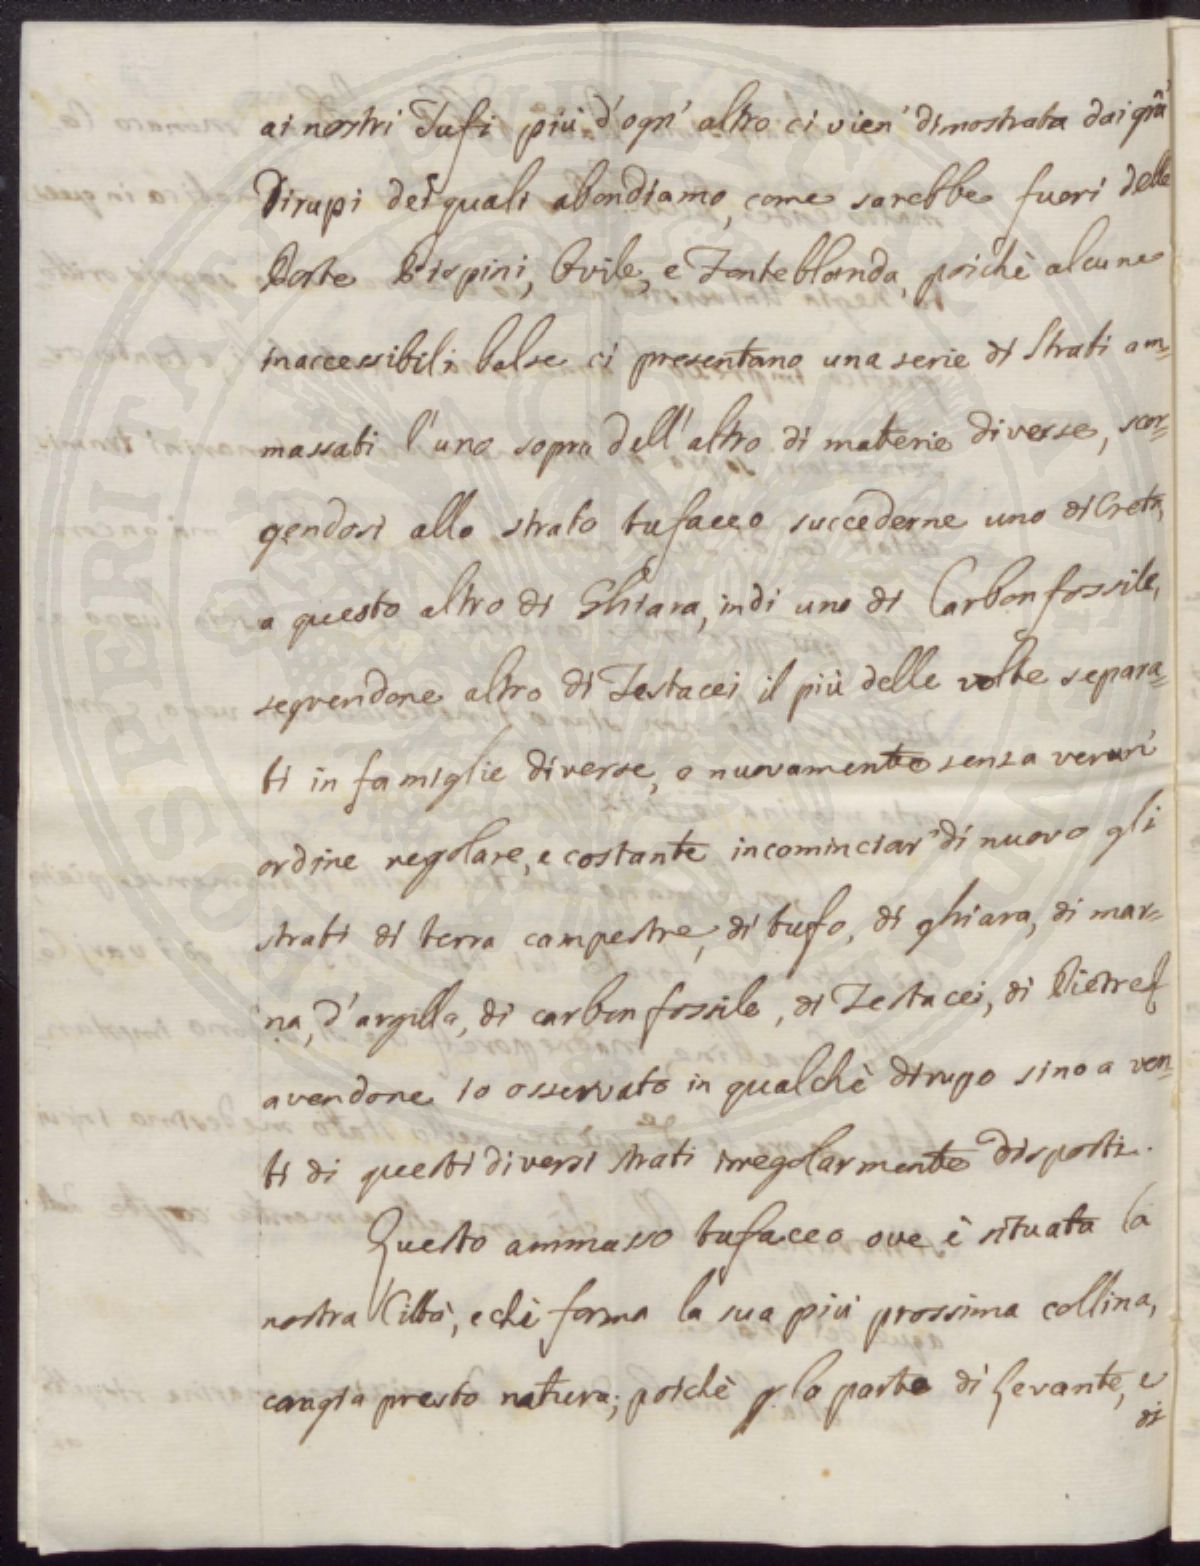 ai nostri Tufi più d'ogn' altro ci vien' dimostrata dai grã
Dirupi dei quali abondiamo, come sarebbe fuori delle
Porte Pispini, Ovile, e Fonteblanda, poichè alcune
inaccessibili balse ci presentano una serie di Strati am=
massati l'uno sopra dell'altro di materie diverse, scor=
gendosi allo strato tufaceo succederne uno di Creta,
a questo altro di Ghiara, indi uno di Carbon fossile,
seguendone altro di Testacei il più delle volte separa=
ti in famiglie diverse, e nuovamente senza verun'
ordine regolare, e costante incominciar' di nuovo gli
strati di terra campestre, di tufo, di ghiara, di mar=
na, d'argilla, di carbon fossile, di Testacei, di Pietre
avendone io osservato in qualchè dirupo sino a ven=
ti di questi diversi strati irregolarmente disposti.
Questo ammasso tufaceo ove è situata la
nostra Città, e chè forma la sua più prossima collina,
cangia presto natura; poichè p. la parte di Levante, e
di
SOSPERITATI PUBLICAE AUGENDAE